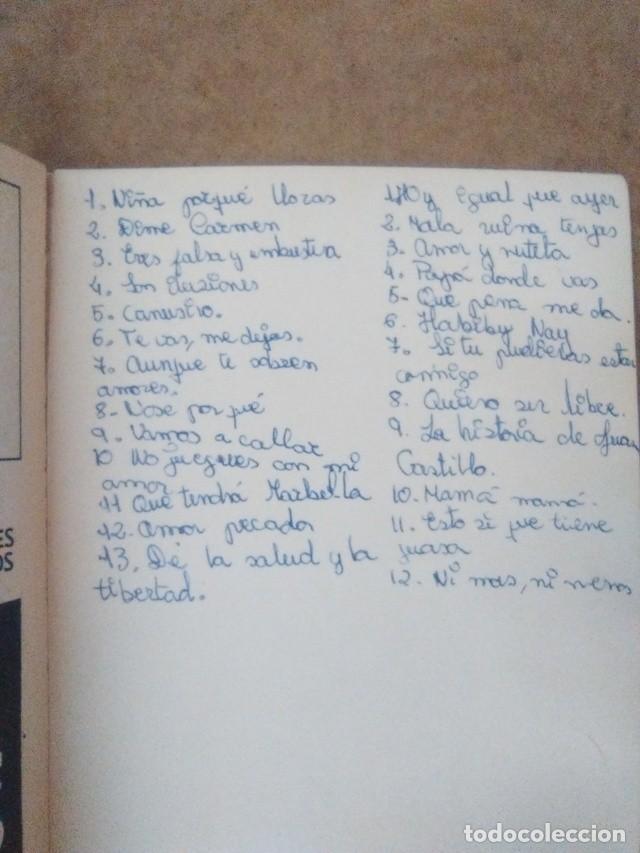 1. Niña porqué lloras
2. Dime Carmen
3. Eres falsa y embustera
4. Son iluziones
5. Canustro.
6. Te vas, me dejas.
7. Aunque te sobren
amores.
8. Nose por qué
9. Vamos a callar
10 No juegues con mi
amor
11 Que tendrá Marbella
12. Amor pecador
13. De la salud y la
libertad.
1 Hoy igual que ayer
2. Mala ruina tengas
3. Amor y ruleta
4. Papá donde vas
5. Que pena me da.
6. Habiby Nay
7. Si tu pudieras estar
conmigo
8. Quiero ser libre.
9. La historia de Juan
Castillo.
10. Mamá mamá.
11. Esto si que tiene
guasa
12. Ni mas, ni menos
ES
OS
todocoleccion